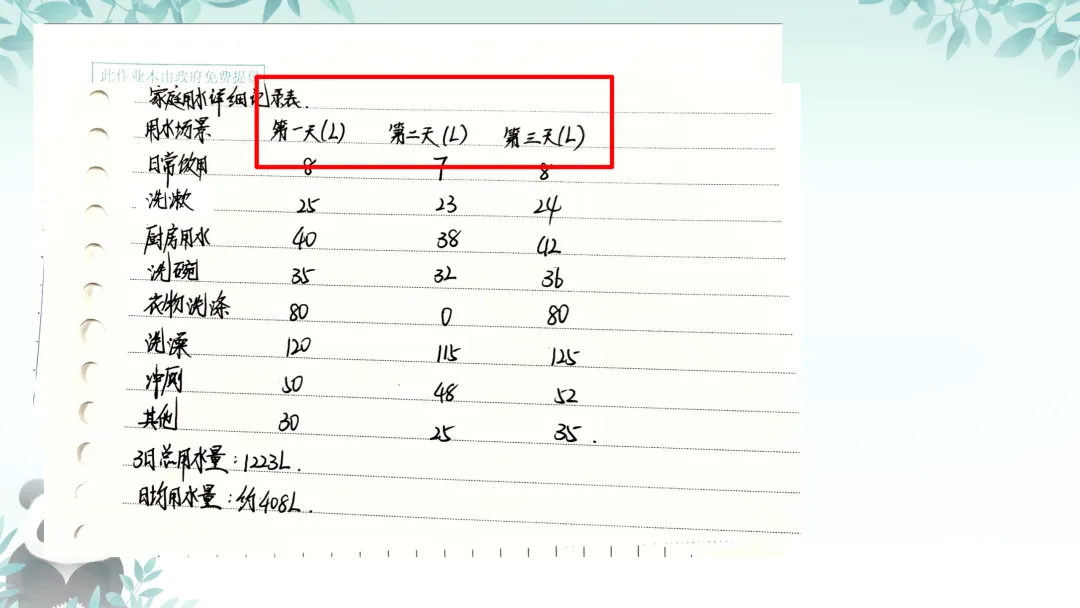 此作业本由政府免费提供
家庭用水详细记录表.
用水场景 第一天(L) 第二天(L) 第三天(L)
日常饮用 8 7 8
洗漱 25 23 24
厨房用水 40 38 42
洗碗 35 32 36
衣物洗涤 80 0 80
洗澡 120 115 125
冲厕 50 48 52
其他 30 25 35.
3日总用水量:1223L.
日均用水量:约408L.